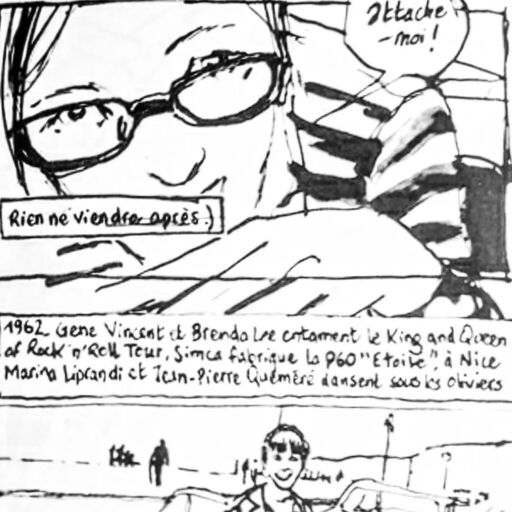 Attache
-moi !
Rien ne viendra après.)
1962 Gene Vincent et Brenda Lee entament le King and Queen
of Rock'n'Roll Tour, Simca fabrique la P60 "Etoile", à Nice
Marina Liprandi et Jean-Pierre Quéméré dansent sous les oliviers